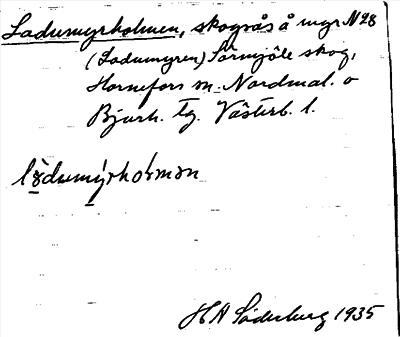 Ladumyrholmen, skogsås å myr N28
(Ladumyren) Sörmjöle skog,
Hörnefors sn. Nordmal. o
Bjurh. tg. Västerb. l.
lɑ̀dumýrhoɫmən
H A Söderberg 1935